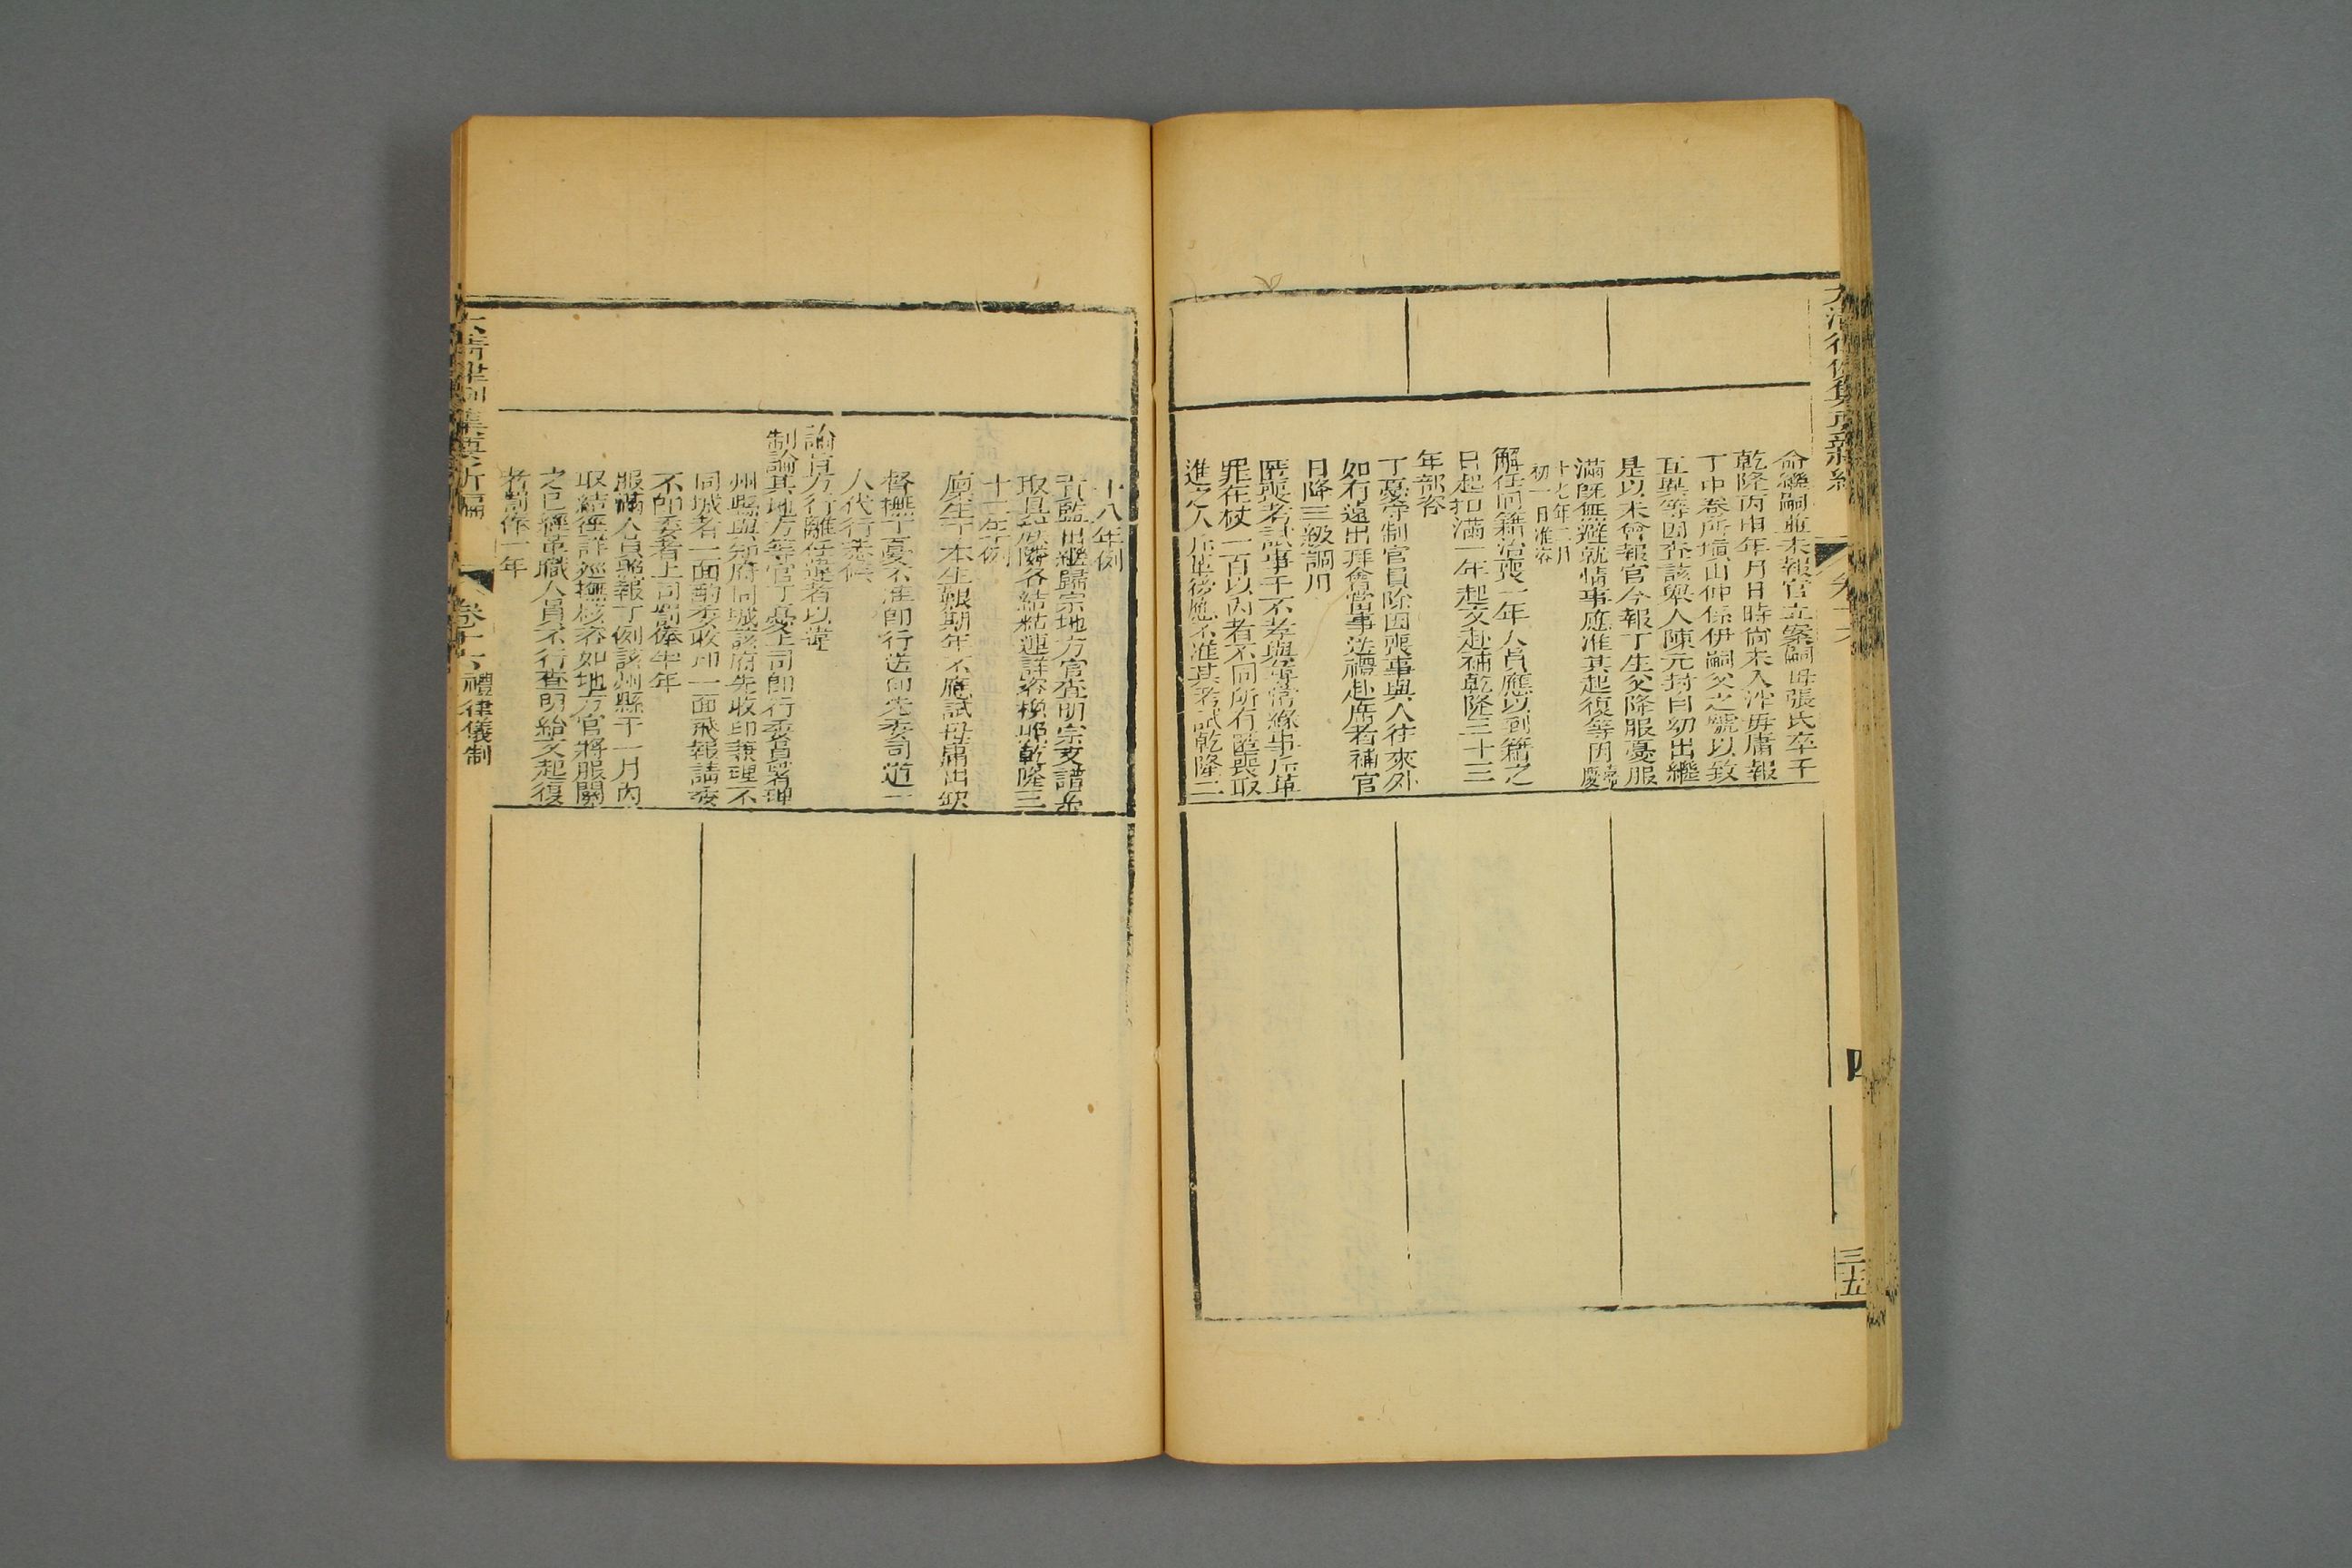 命繼嗣並未報官立案嗣母張氏卒于
乾隆丙申年月日時尚未入泮毋庸報
丁中卷所填山仲係伊嗣父之號以致
互異等因查該舉人陳元封自幼出繼
是以未曾報官今報丁生父降服憂服
滿既無避就情事應准其起復等因嘉慶
十七年二月
初一日准咨
解任回籍治喪一年人員應以到籍之
日起扣滿一年起文赴補乾隆三十三
年部咨
丁憂守制官員除因喪事與人往來外
如有遠出拜會當事送禮赴席者補官
日降三級調用
匿喪考試事干不孝與尋常緣事斥革
罪在杖一百以內者不同所有匿喪取
進之人斥革後應不准其考試乾隆二
四
三十五
十八年例
貢監出繼歸宗地方官查明宗支譜系
取具族鄰各結粘連詳咨換照乾隆三
十一年例
廩生丁本生艱期年不應試毋庸出缺
督撫丁憂不准即行送印先委司道一
人代行恭候
諭旨方行離任違者以違
制論其地方等官丁憂上司即行委員署理
州縣與知府同城該府先收印兼理不
同城者一面酌委收印一面飛報請委
不即委者上司罰俸半年
服滿人員照報丁例該州縣于一月內
取結徑詳巡撫核咨如地方官將服闋
之已經革職人員不行查明給文起復
者罰俸一年
大清律例集要新編
卷十六 禮律儀制